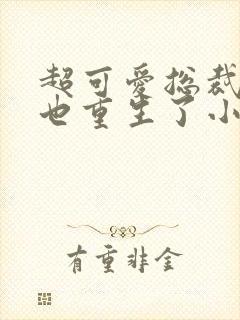 超可爱总裁
也重生了小
有重非金